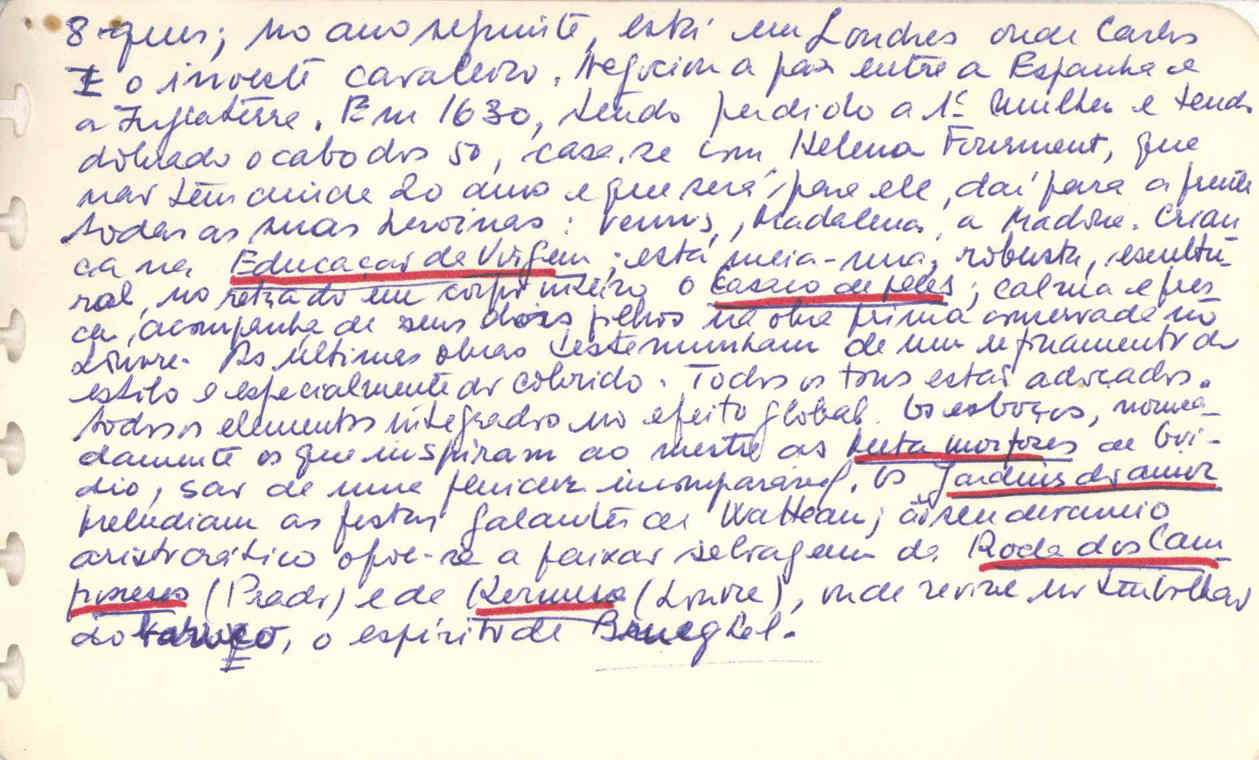 8 ques; no ano seguinte, está em Londres onde Carlos
I o investe cavaleiro. Negoceia a paz entre a Espanha e
a Inglaterra. Em 1630, tendo perdido a 1ª mulher e tendo
dobrado o cabo dos 50, casa-se com Helena Fourment, que
não tem ainde 20 anos e que será, para ele, daí para a frente
todas as suas heroínas: Venus, Madalena, a Madone. Crian
ça na Educação da Virgem; está meia-nua, robusta, escultu-
ral, no retrado em corpo inteiro o Casaco de peles; calma e fres
ca, acompanha de seus dois filhos na obra prima conservada no
Louvre. As últimas obras testemunham de um refinamento do
estilo e especialmente do colorido. Todos os tons estão adoçados.
todos os elementos integrados no efeito global. Os esboços, nomea-
damente os que inspiram ao mestre as Metamorfoses de Oví-
dio, são de uma fluidez incomparável. Os Jardins do amor
preludiam as festas galantes de Watteau; ao seu devaneio
aristocrático opõe-se a paixão selvagem da Roda dos Cam
poneses (Prado) e da Kermesse (Louvre), onde revive no turbilhão
do, o espírito de Brueghel.